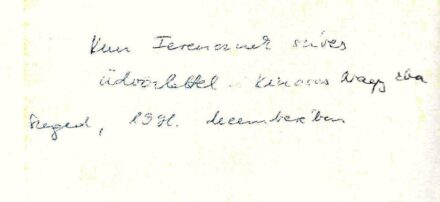 Kun Ferencnek szíves
üdvözlettel. Nagy Éva
Szeged, decemberében